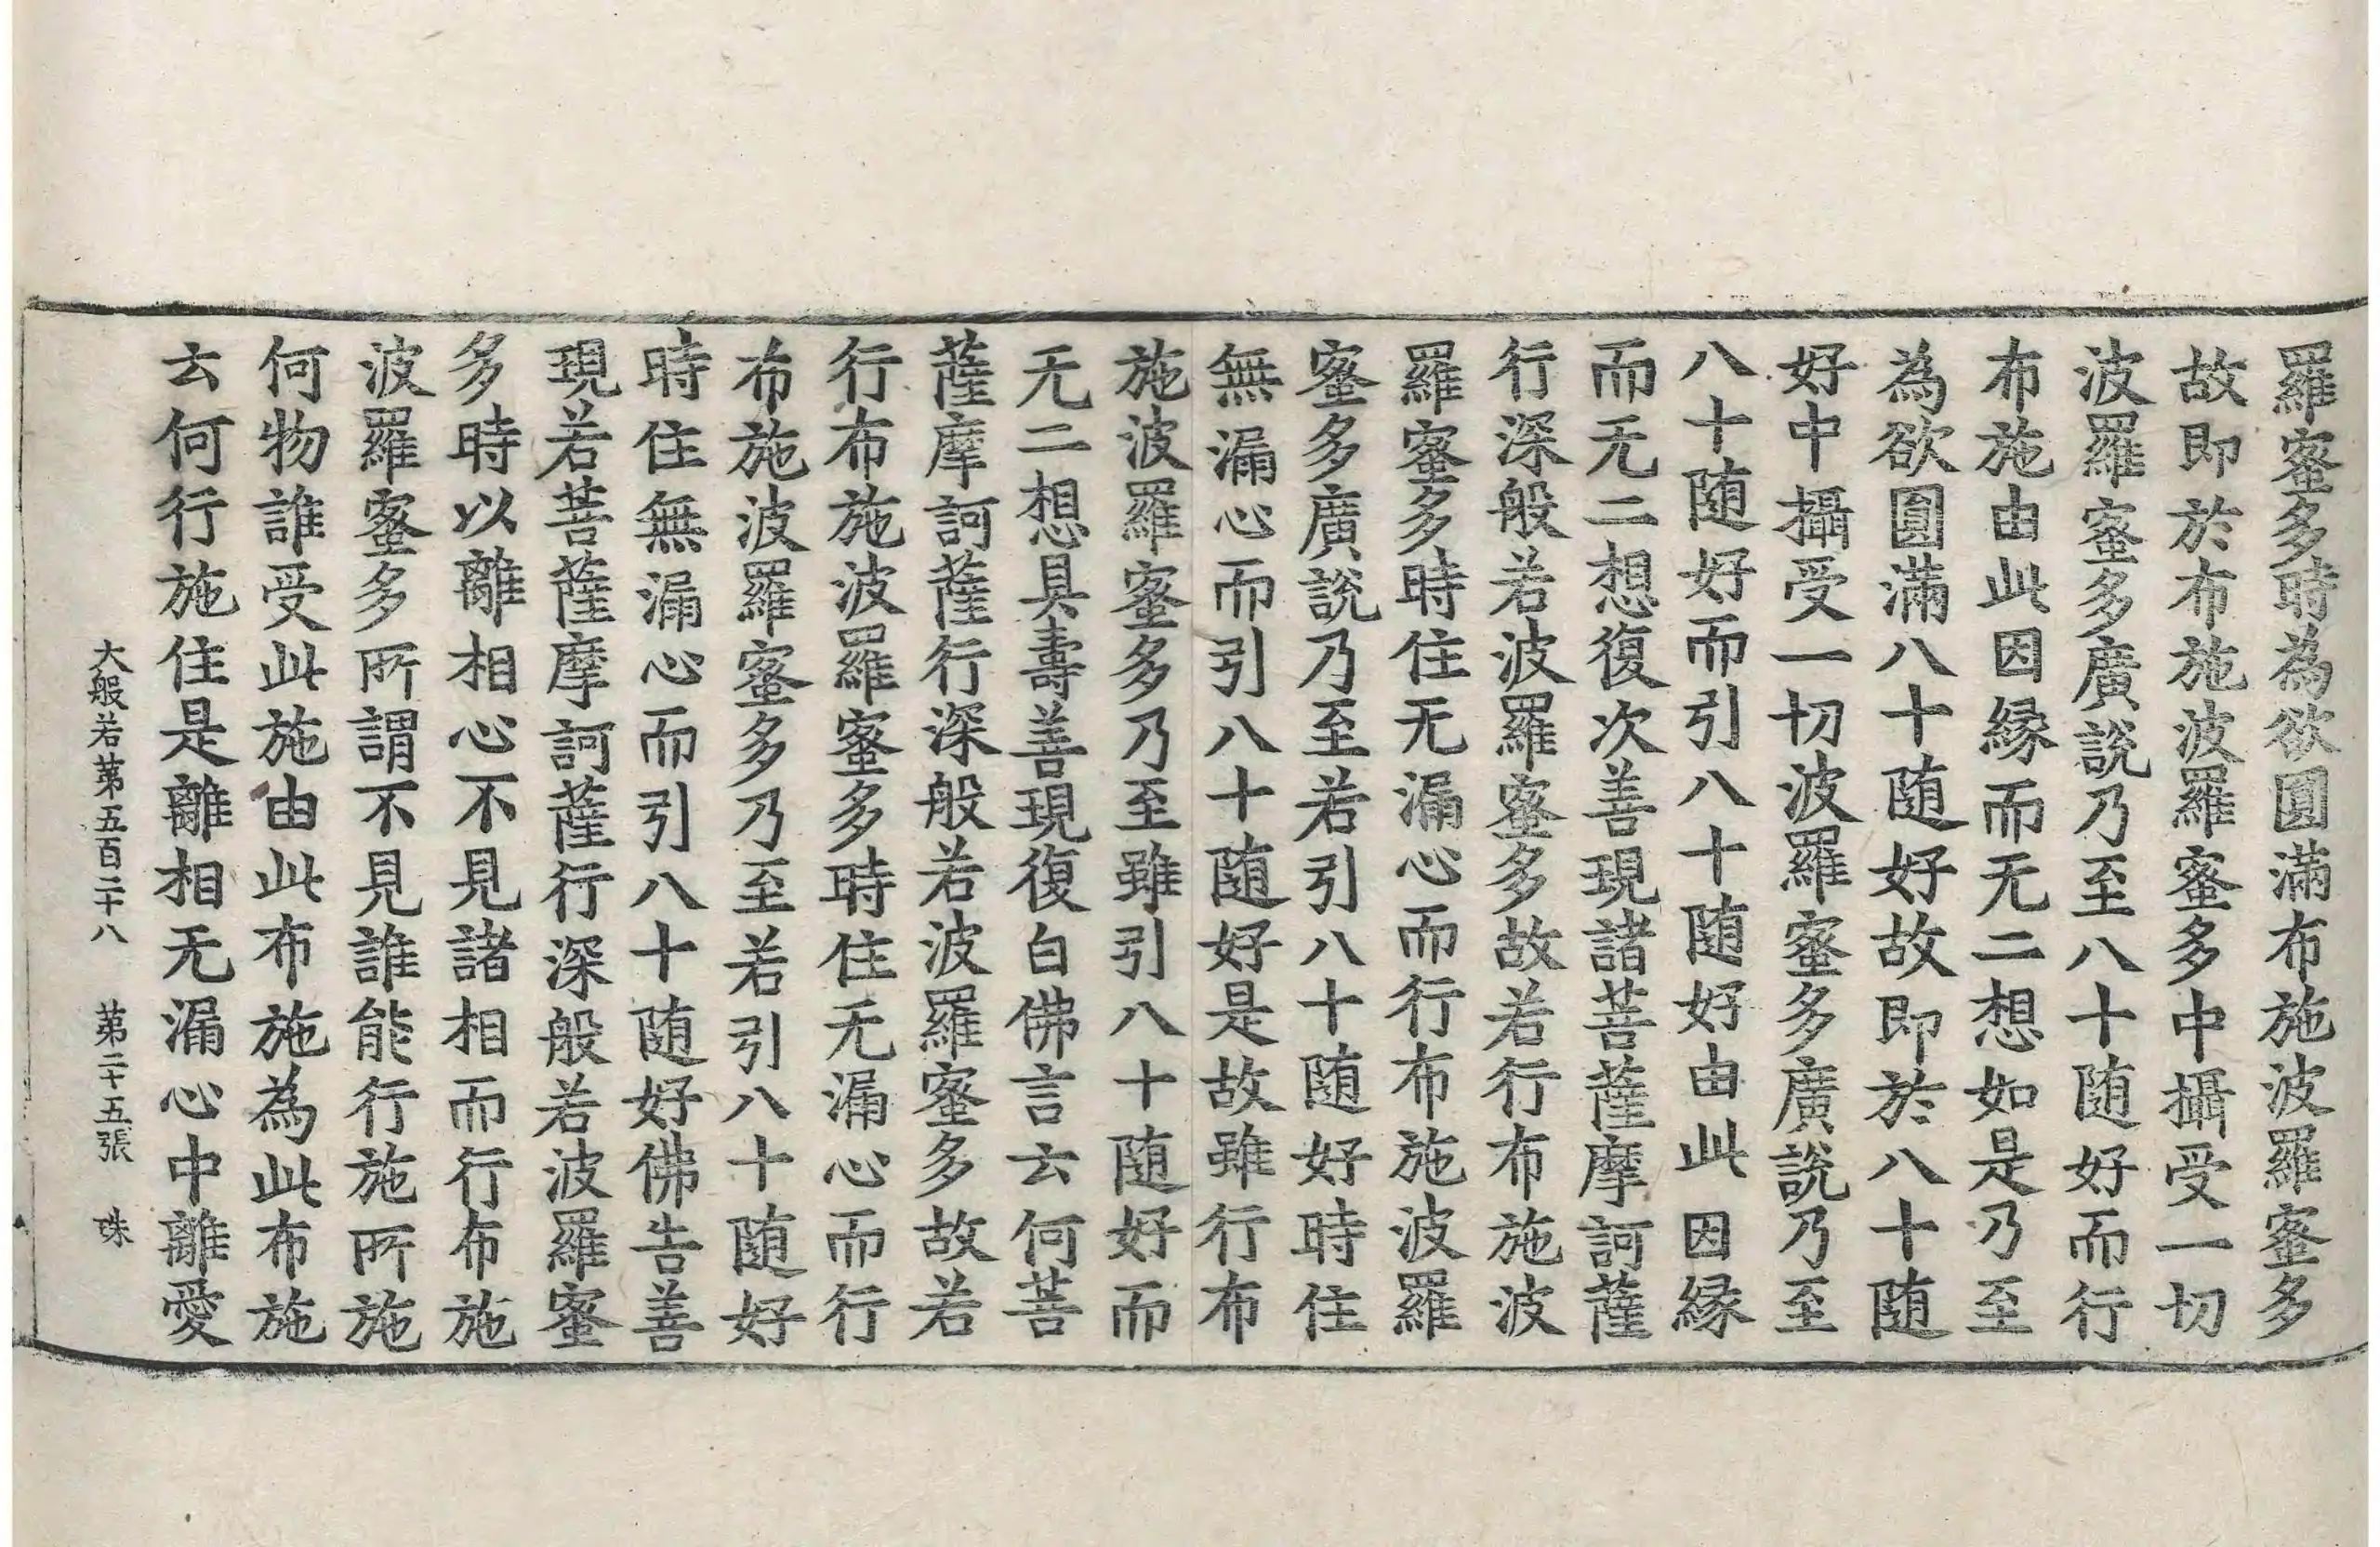 羅蜜多時為欲圓滿布施波羅蜜多
故即於布施波羅蜜多中攝受一切
波羅蜜多廣說乃至八十随好而行
布施由此因縁而无二想如是乃至
為欲圓滿八十随好故即於八十随
好中攝受一切波羅蜜多廣說乃至
八十随好而引八十随好由此因縁
而无二想復次善現諸菩薩摩訶薩
行深般若波羅蜜多故若行布施波
羅蜜多時住无漏心而行布施波羅
蜜多廣說乃至若引八十随好時住
無漏心而引八十随好是故雖行布
施波羅蜜多乃至雖引八十随好而
无二想具壽善現復白佛言云何菩
薩摩訶薩行深般若波羅蜜多故若
行布施波羅蜜多時住无漏心而行
布施波羅蜜多乃至若引八十随好
時住無漏心而引八十随好佛告善
現若菩薩摩訶薩行深般若波羅蜜
多時以離相心不見諸相而行布施
波羅蜜多所謂不見誰能行施所施
何物誰受此施由此布施為此布施
云何行施住是離相无漏心中離愛
大般若第五百二十八 第二十五張 珠